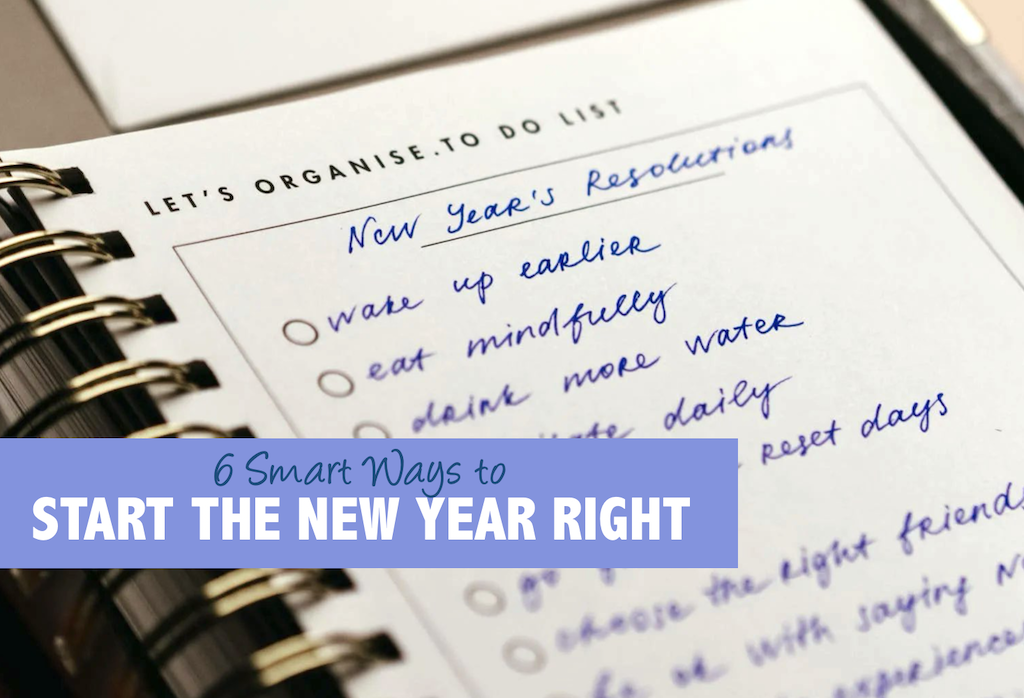 LET'S ORGANISE.TO DO LIST
New Year's Resolutions
wake up earlier
eat mindfully
drink more water
daily
reset days
6 Smart Ways to
START THE NEW YEAR RIGHT
go
choose the right friends
be ok with saying
experiences